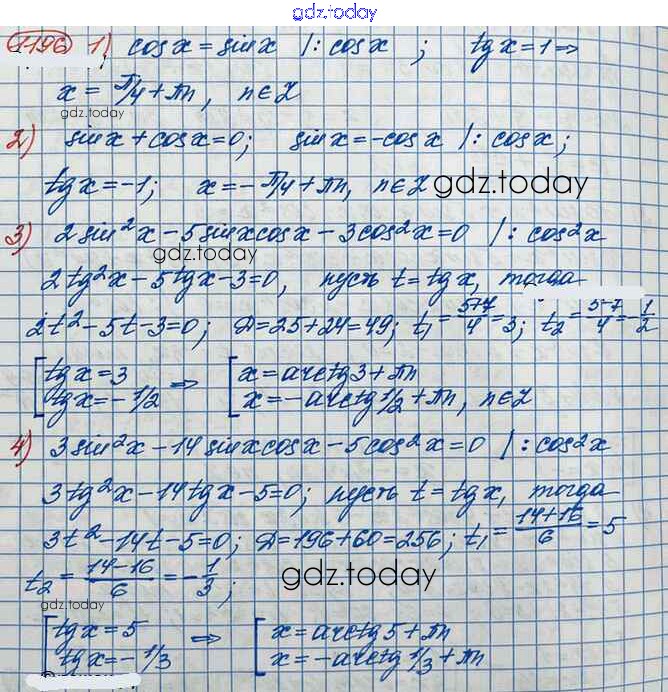 gdz.today
1196 1) cos x = sin x |: cos x ; tg x = 1 ⇒
x = π/4 + πn, n ∈ Z
gdz.today
2) sin x + cos x = 0; sin x = -cos x |: cos x;
tg x = -1; x = -π/4 + πn, n ∈ Z gdz.today
3) 2 sin² x - 5 sin x cos x - 3 cos² x = 0 |: cos² x
gdz.today
2 tg² x - 5 tg x - 3 = 0, пусть t = tg x, тогда
2t² - 5t - 3 = 0; D = 25 + 24 = 49; t₁ = (5+7)/4 = 3; t₂ = (5-7)/4 = -1/2
[ tg x = 3 ⇒ [ x = arctg 3 + πn
tg x = -1/2 x = -arctg 1/2 + πn, n ∈ Z
4) 3 sin² x - 14 sin x cos x - 5 cos² x = 0 |: cos² x
3 tg² x - 14 tg x - 5 = 0; пусть t = tg x, тогда
3t² - 14t - 5 = 0; D = 196 + 60 = 256; t₁ = (14+16)/6 = 5
t₂ = (14-16)/6 = -1/3; gdz.today
gdz.today
[ tg x = 5 ⇒ [ x = arctg 5 + πn
tg x = -1/3 x = -arctg 1/3 + πn